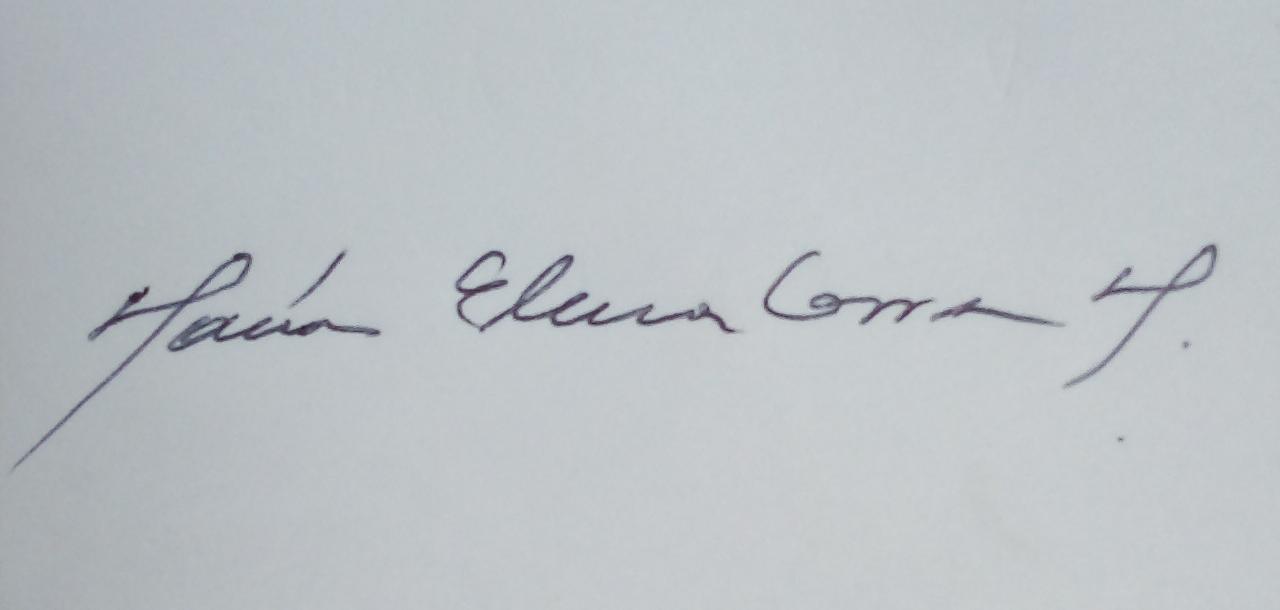 María Elena Correa M.